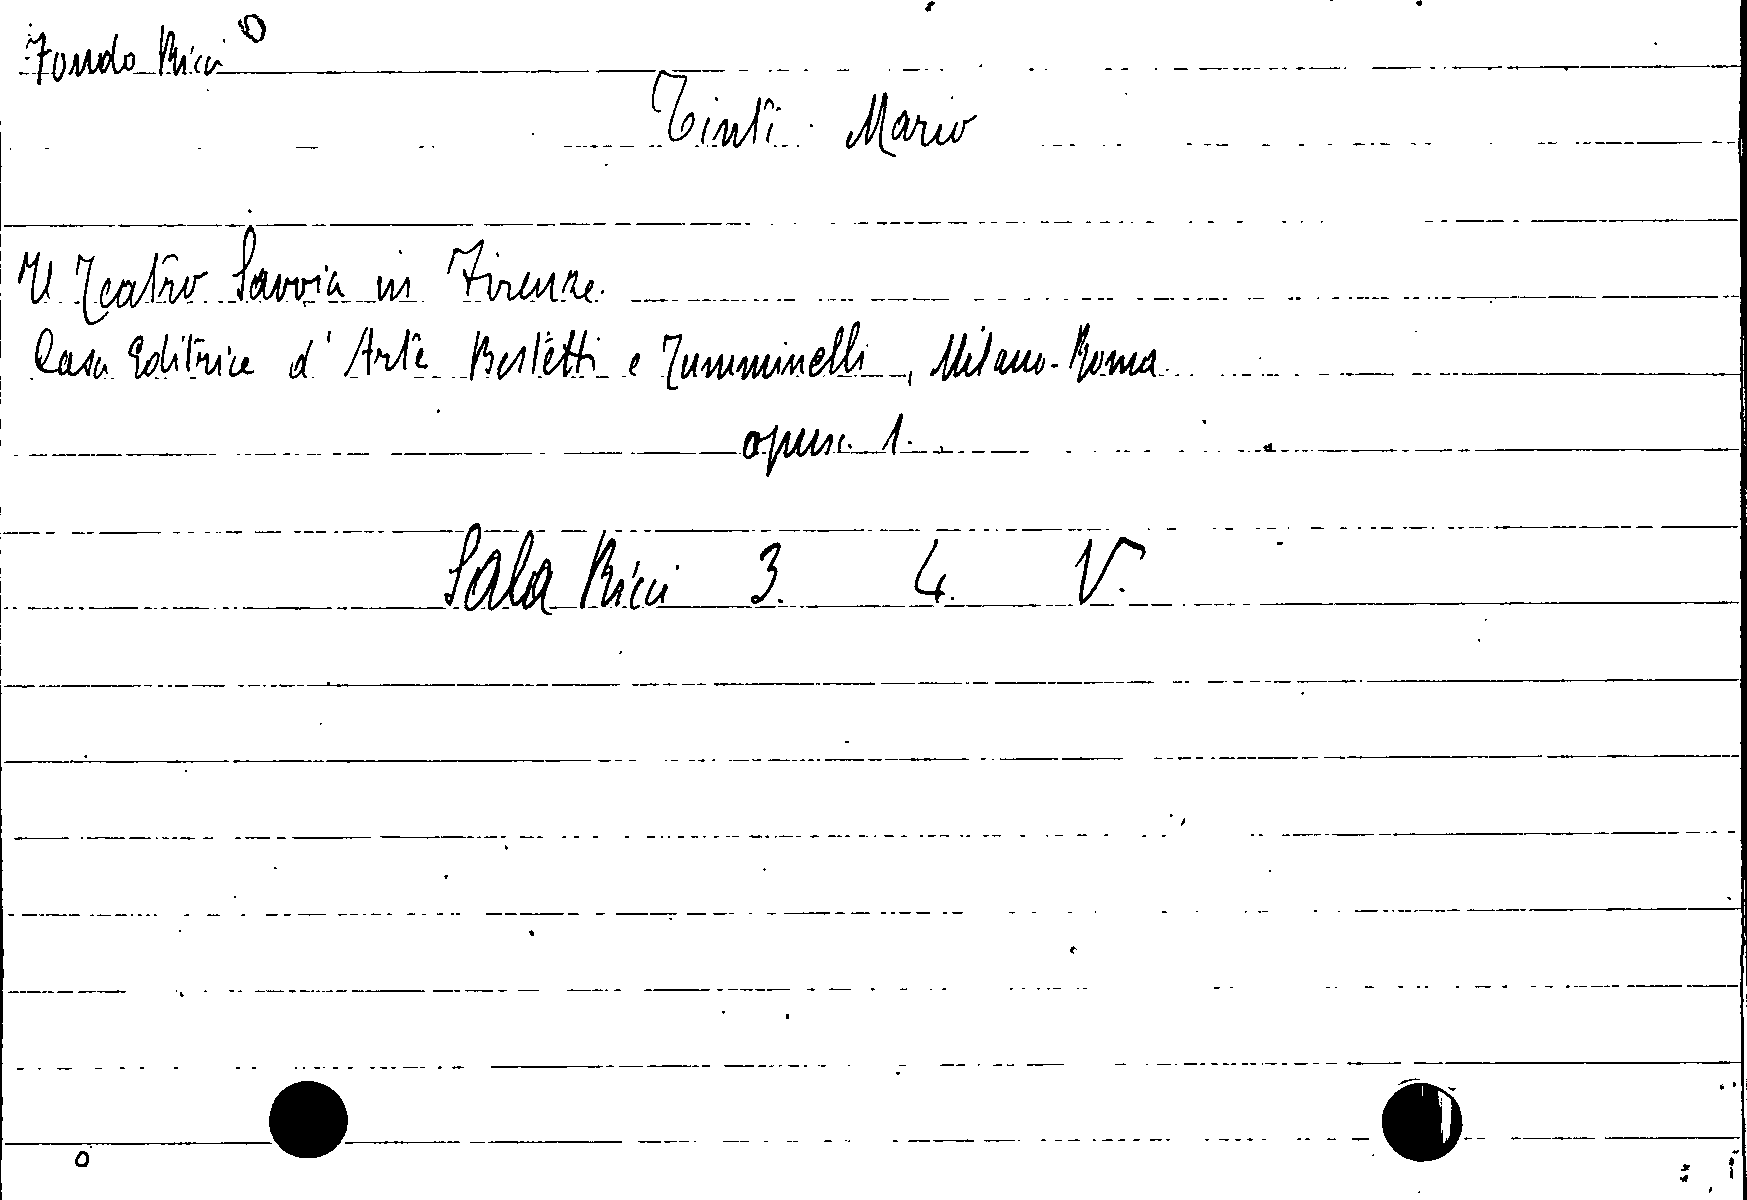 Fondo Ricci
Tinti Mario
Il Teatro Savoia in Firenze.
Casa Editrice d'Arte Bestetti e Tumminelli, Milano-Roma
opusc. 1.
Sala Ricci 3. 4. V.